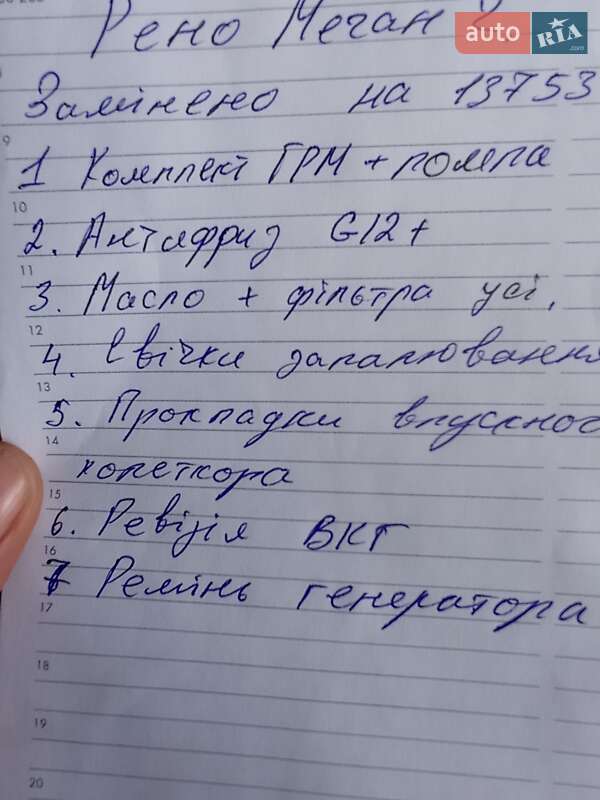 Рено Меган 2
auto RIA .com
Замінено на 13753
9
1 Комплект ГРМ + помпа
10
2. Антифриз G12+
11
3. Масло + фільтра усі,
12
4. Свічки запалювання
13
5. Прокладки впускного
14
колеткора
15
6. Ревізія ВКГ
16
7 Ремінь генератора
17
18
19
20